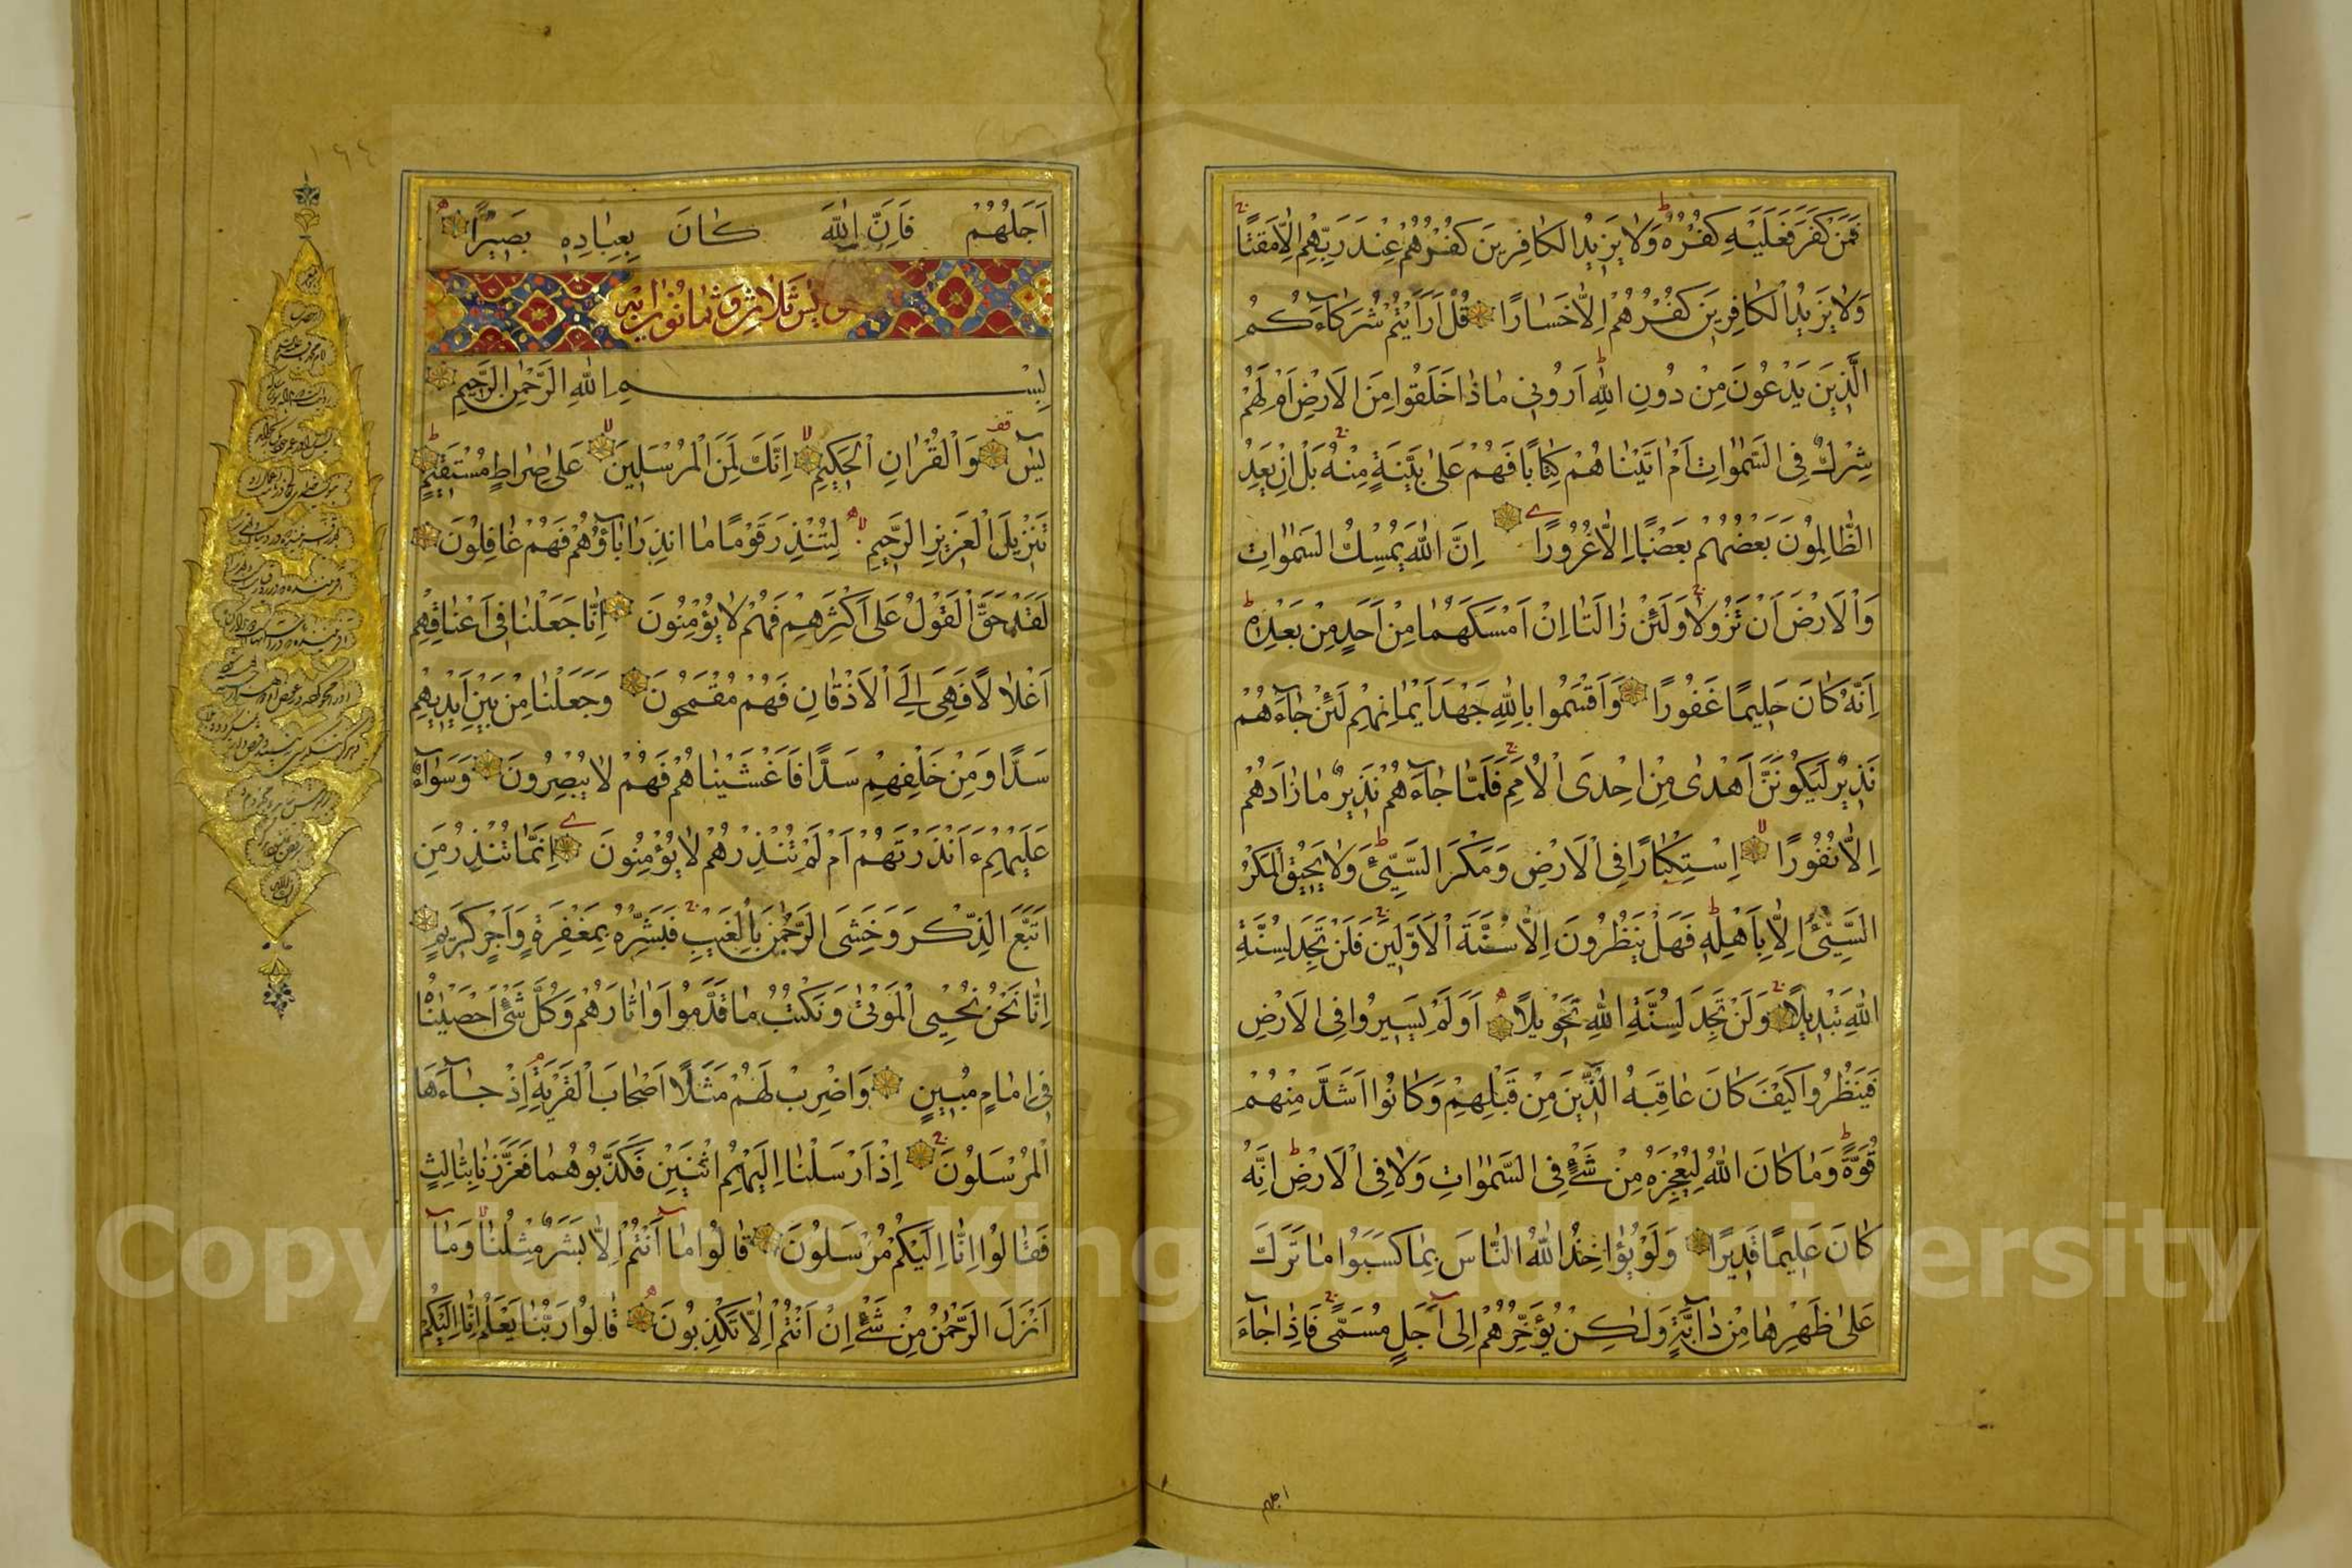 فَمَنْ كَفَرَ فَعَلَيْهِ كُفْرُهُ وَلَا يَزِيدُ الْكَافِرِينَ كُفْرُهُمْ عِنْدَ رَبِّهِمْ اِلَّا مَقْتًا
وَلَا يَزِيدُ الْكَافِرِينَ كُفْرُهُمْ اِلَّا خَسَارًا قُلْ اَرَاَيْتُمْ شُرَكَآءَكُمُ
الَّذِينَ يَدْعُونَ مِنْ دُونِ اللّٰهِ اَرُونِي مَاذَا خَلَقُوا مِنَ الْاَرْضِ اَمْ لَهُمْ
شِرْكٌ فِي السَّمٰوَاتِ اَمْ اٰتَيْنَاهُمْ كِتَابًا فَهُمْ عَلٰى بَيِّنَةٍ مِنْهُ بَلْ اِنْ يَعِدُ
الظَّالِمُونَ بَعْضُهُمْ بَعْضًا اِلَّا غُرُورًا اِنَّ اللّٰهَ يُمْسِكُ السَّمٰوَاتِ
وَالْاَرْضَ اَنْ تَزُولَا وَلَئِنْ زَالَتَا اِنْ اَمْسَكَهُمَا مِنْ اَحَدٍ مِنْ بَعْدِهِ
اِنَّهُ كَانَ حَلِيمًا غَفُورًا وَاَقْسَمُوا بِاللّٰهِ جَهْدَ اَيْمَانِهِمْ لَئِنْ جَآءَهُمْ
نَذِيرٌ لَيَكُونُنَّ اَهْدٰى مِنْ اِحْدَى الْاُمَمِ فَلَمَّا جَآءَهُمْ نَذِيرٌ مَا زَادَهُمْ
اِلَّا نُفُورًا اِسْتِكْبَارًا فِي الْاَرْضِ وَمَكْرَ السَّيِّئِ وَلَا يَحِيقُ الْمَكْرُ
السَّيِّئُ اِلَّا بِاَهْلِهِ فَهَلْ يَنْظُرُونَ اِلَّا سُنَّةَ الْاَوَّلِينَ فَلَنْ تَجِدَ لِسُنَّةِ
اللّٰهِ تَبْدِيلًا وَلَنْ تَجِدَ لِسُنَّةِ اللّٰهِ تَحْوِيلًا اَوَلَمْ يَسِيرُوا فِي الْاَرْضِ
فَيَنْظُرُوا كَيْفَ كَانَ عَاقِبَةُ الَّذِينَ مِنْ قَبْلِهِمْ وَكَانُوا اَشَدَّ مِنْهُمْ
قُوَّةً وَمَا كَانَ اللّٰهُ لِيُعْجِزَهُ مِنْ شَيْءٍ فِي السَّمٰوَاتِ وَلَا فِي الْاَرْضِ اِنَّهُ
كَانَ عَلِيمًا قَدِيرًا وَلَوْ يُؤَاخِذُ اللّٰهُ النَّاسَ بِمَا كَسَبُوا مَا تَرَكَ
عَلٰى ظَهْرِهَا مِنْ دَآبَّةٍ وَلٰكِنْ يُؤَخِّرُهُمْ اِلٰى اَجَلٍ مُسَمًّى فَاِذَا جَآءَ
اجلهم
١٦٤
اَجَلُهُمْ فَاِنَّ اللّٰهَ كَانَ بِعِبَادِهِ بَصِيرًا
يس ثلاث وثمانون اية
بِسْمِ اللّٰهِ الرَّحْمٰنِ الرَّحِيمِ
يٰسٓ وَالْقُرْاٰنِ الْحَكِيمِ اِنَّكَ لَمِنَ الْمُرْسَلِينَ عَلٰى صِرَاطٍ مُسْتَقِيمٍ
تَنْزِيلَ الْعَزِيزِ الرَّحِيمِ لِتُنْذِرَ قَوْمًا مَا اُنْذِرَ اٰبَآؤُهُمْ فَهُمْ غَافِلُونَ
لَقَدْ حَقَّ الْقَوْلُ عَلٰى اَكْثَرِهِمْ فَهُمْ لَا يُؤْمِنُونَ اِنَّا جَعَلْنَا فِي اَعْنَاقِهِمْ
اَغْلَالًا فَهِيَ اِلَى الْاَذْقَانِ فَهُمْ مُقْمَحُونَ وَجَعَلْنَا مِنْ بَيْنِ اَيْدِيهِمْ
سَدًّا وَمِنْ خَلْفِهِمْ سَدًّا فَاَغْشَيْنَاهُمْ فَهُمْ لَا يُبْصِرُونَ وَسَوَآءٌ
عَلَيْهِمْ ءَاَنْذَرْتَهُمْ اَمْ لَمْ تُنْذِرْهُمْ لَا يُؤْمِنُونَ اِنَّمَا تُنْذِرُ مَنِ
اتَّبَعَ الذِّكْرَ وَخَشِيَ الرَّحْمٰنَ بِالْغَيْبِ فَبَشِّرْهُ بِمَغْفِرَةٍ وَاَجْرٍ كَرِيمٍ
اِنَّا نَحْنُ نُحْيِي الْمَوْتٰى وَنَكْتُبُ مَا قَدَّمُوا وَاٰثَارَهُمْ وَكُلَّ شَيْءٍ اَحْصَيْنَاهُ
فِي اِمَامٍ مُبِينٍ وَاضْرِبْ لَهُمْ مَثَلًا اَصْحَابَ الْقَرْيَةِ اِذْ جَآءَهَا
الْمُرْسَلُونَ اِذْ اَرْسَلْنَا اِلَيْهِمُ اثْنَيْنِ فَكَذَّبُوهُمَا فَعَزَّزْنَا بِثَالِثٍ
فَقَالُوا اِنَّا اِلَيْكُمْ مُرْسَلُونَ قَالُوا مَآ اَنْتُمْ اِلَّا بَشَرٌ مِثْلُنَا وَمَآ
اَنْزَلَ الرَّحْمٰنُ مِنْ شَيْءٍ اِنْ اَنْتُمْ اِلَّا تَكْذِبُونَ قَالُوا رَبُّنَا يَعْلَمُ اِنَّا اِلَيْكُمْ
Copyright © King Saud University